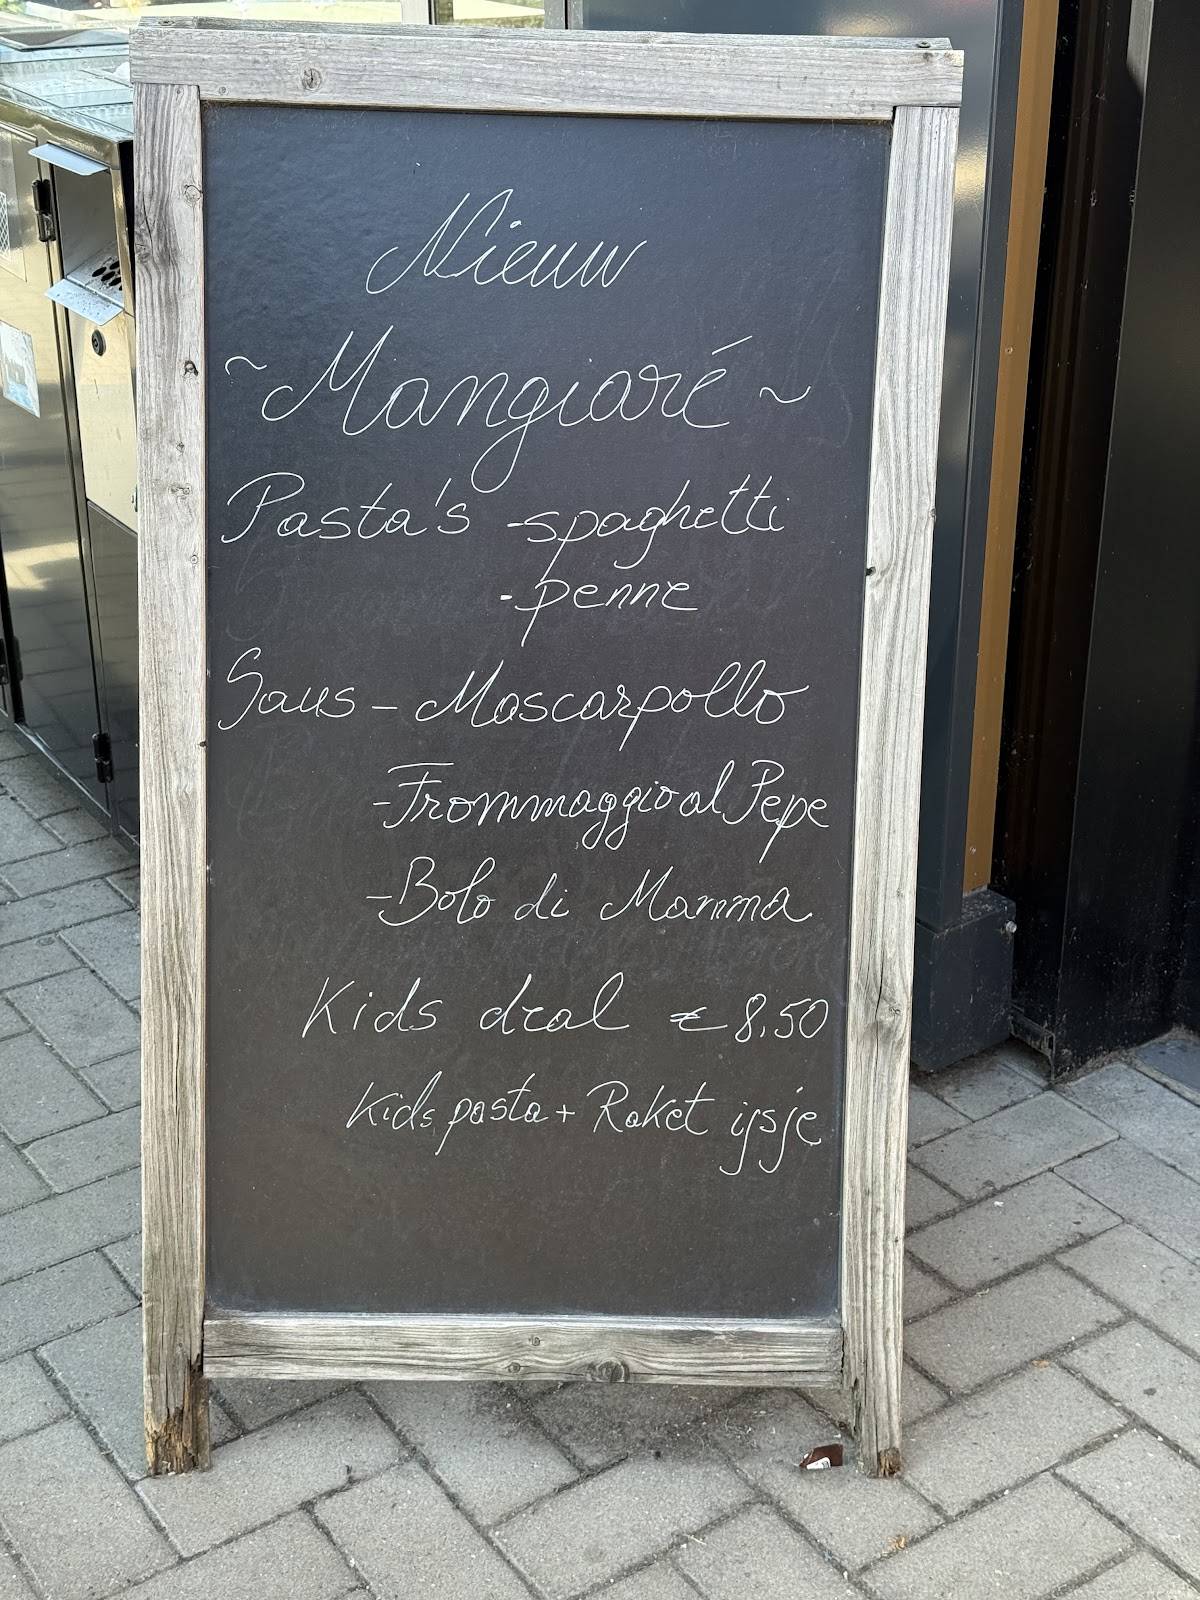 Nieuw
~Mangiaré~
Pasta's -spaghetti
-penne
Saus - Mascarpollo
-Frommaggio al Pepe
-Bolo di Mamma
Kids deal € 8,50
Kids pasta + Raket ijsje